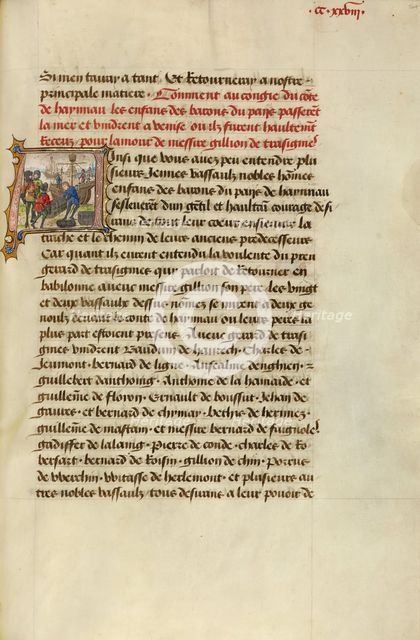 CC xxviii
Si men tairay a tant . Et Retourneray a nostre
principale matiere . Comment au congie du cõte
de haynnau les enfans des barons du pays passerẽt
la mer et vindrent a venise ou ilz furent haultemẽt
Receuz pour lamour de messire gillion de trasignies
Ainsi que vous avez peu entendre plu
sieurs Jeunes vassaulz nobles hõmes
enfans des barons du pays de haynnau
esleuerẽt dun gẽtil et haultain courage desi
rans de tout leur coeur ensieuir la
trache et le chemin de leurs anciens predecesseurs
Car quant ilz eurent entendu la voulente du preu
gerard de trasignies quy parloit de Retourner en
babilonne auecques messire gillion son pere les vingt
et deux vassaulz dessus nõmez se mirent a deux ge
noulz deuant le conte de haynnau ou leurs peres la
plus part estoient presens . Auecq gerard de trasi
gnies vindrent Bauduin de haurech . Charles de
Jeumont . bernard de ligne . Anseaulme denghien . ⁊
guillebert danthoing . Anthoine de la hamaide . et
guillaẽme de floyon . Ernault de boussut . Jehan de
gaures . et bernard de chymay . hermez .
guillaẽme de mastain . et messire bernard de faignoles
gadiffer de lalaing . Pierre de conde . Charles de Ro
bersart . bernard de Roisin . gillion de chin .
de werchin . witasse de herlemont . et plusieurs au
tres nobles vassaulz tous desirans a leur pouoir de
Heritage